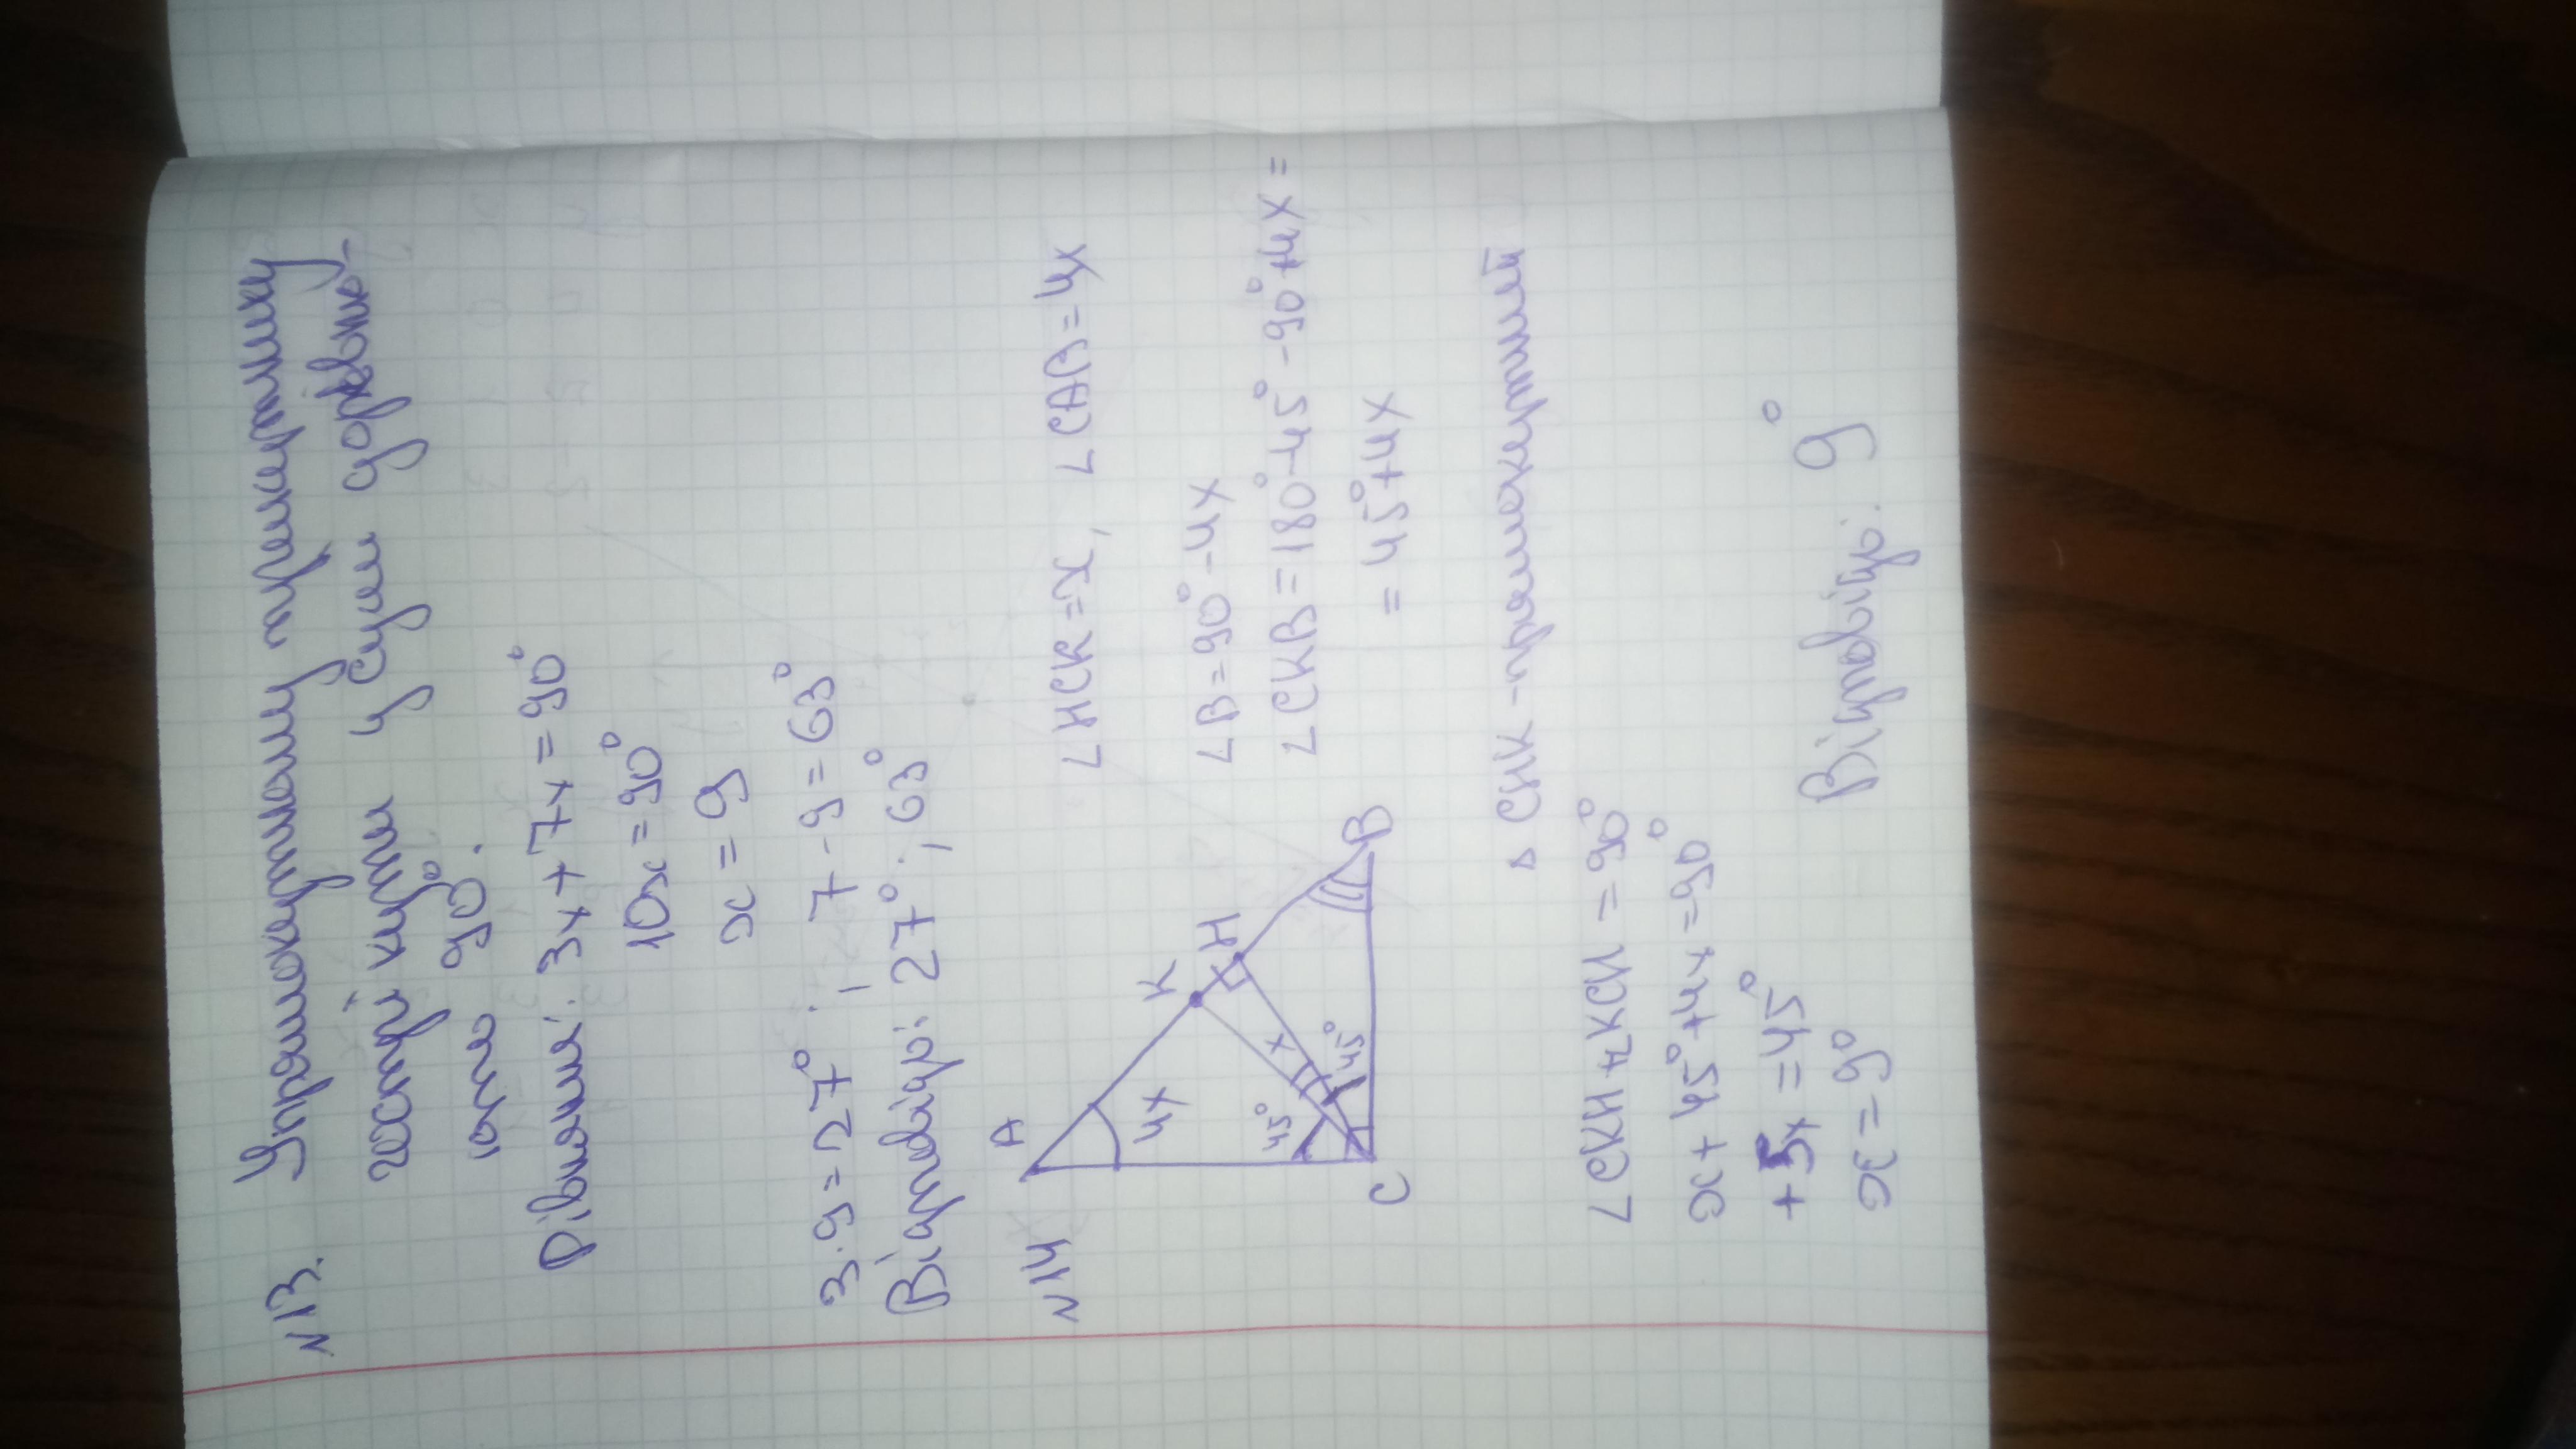 N13. У прямокутному трикутнику
гострі кути у сумі дорівню-
ють 90°.
Рівняння: 3x+7x=90°
10x=90°
x=9
3·9=27° ; 7·9=63°
Відповідь: 27°; 63°
N14
A
K
H
B
C
4x
x
45°
45°
∠HCK=x, ∠CAB=4x
∠B=90°-4x
∠CKB=180°-45°-90°+4x=
=45°+4x
△ CHK-прямокутний
∠CKH+∠KCH=90°
x+45°+4x=90°
+5x=45°
x=9°
Відповідь: 9°